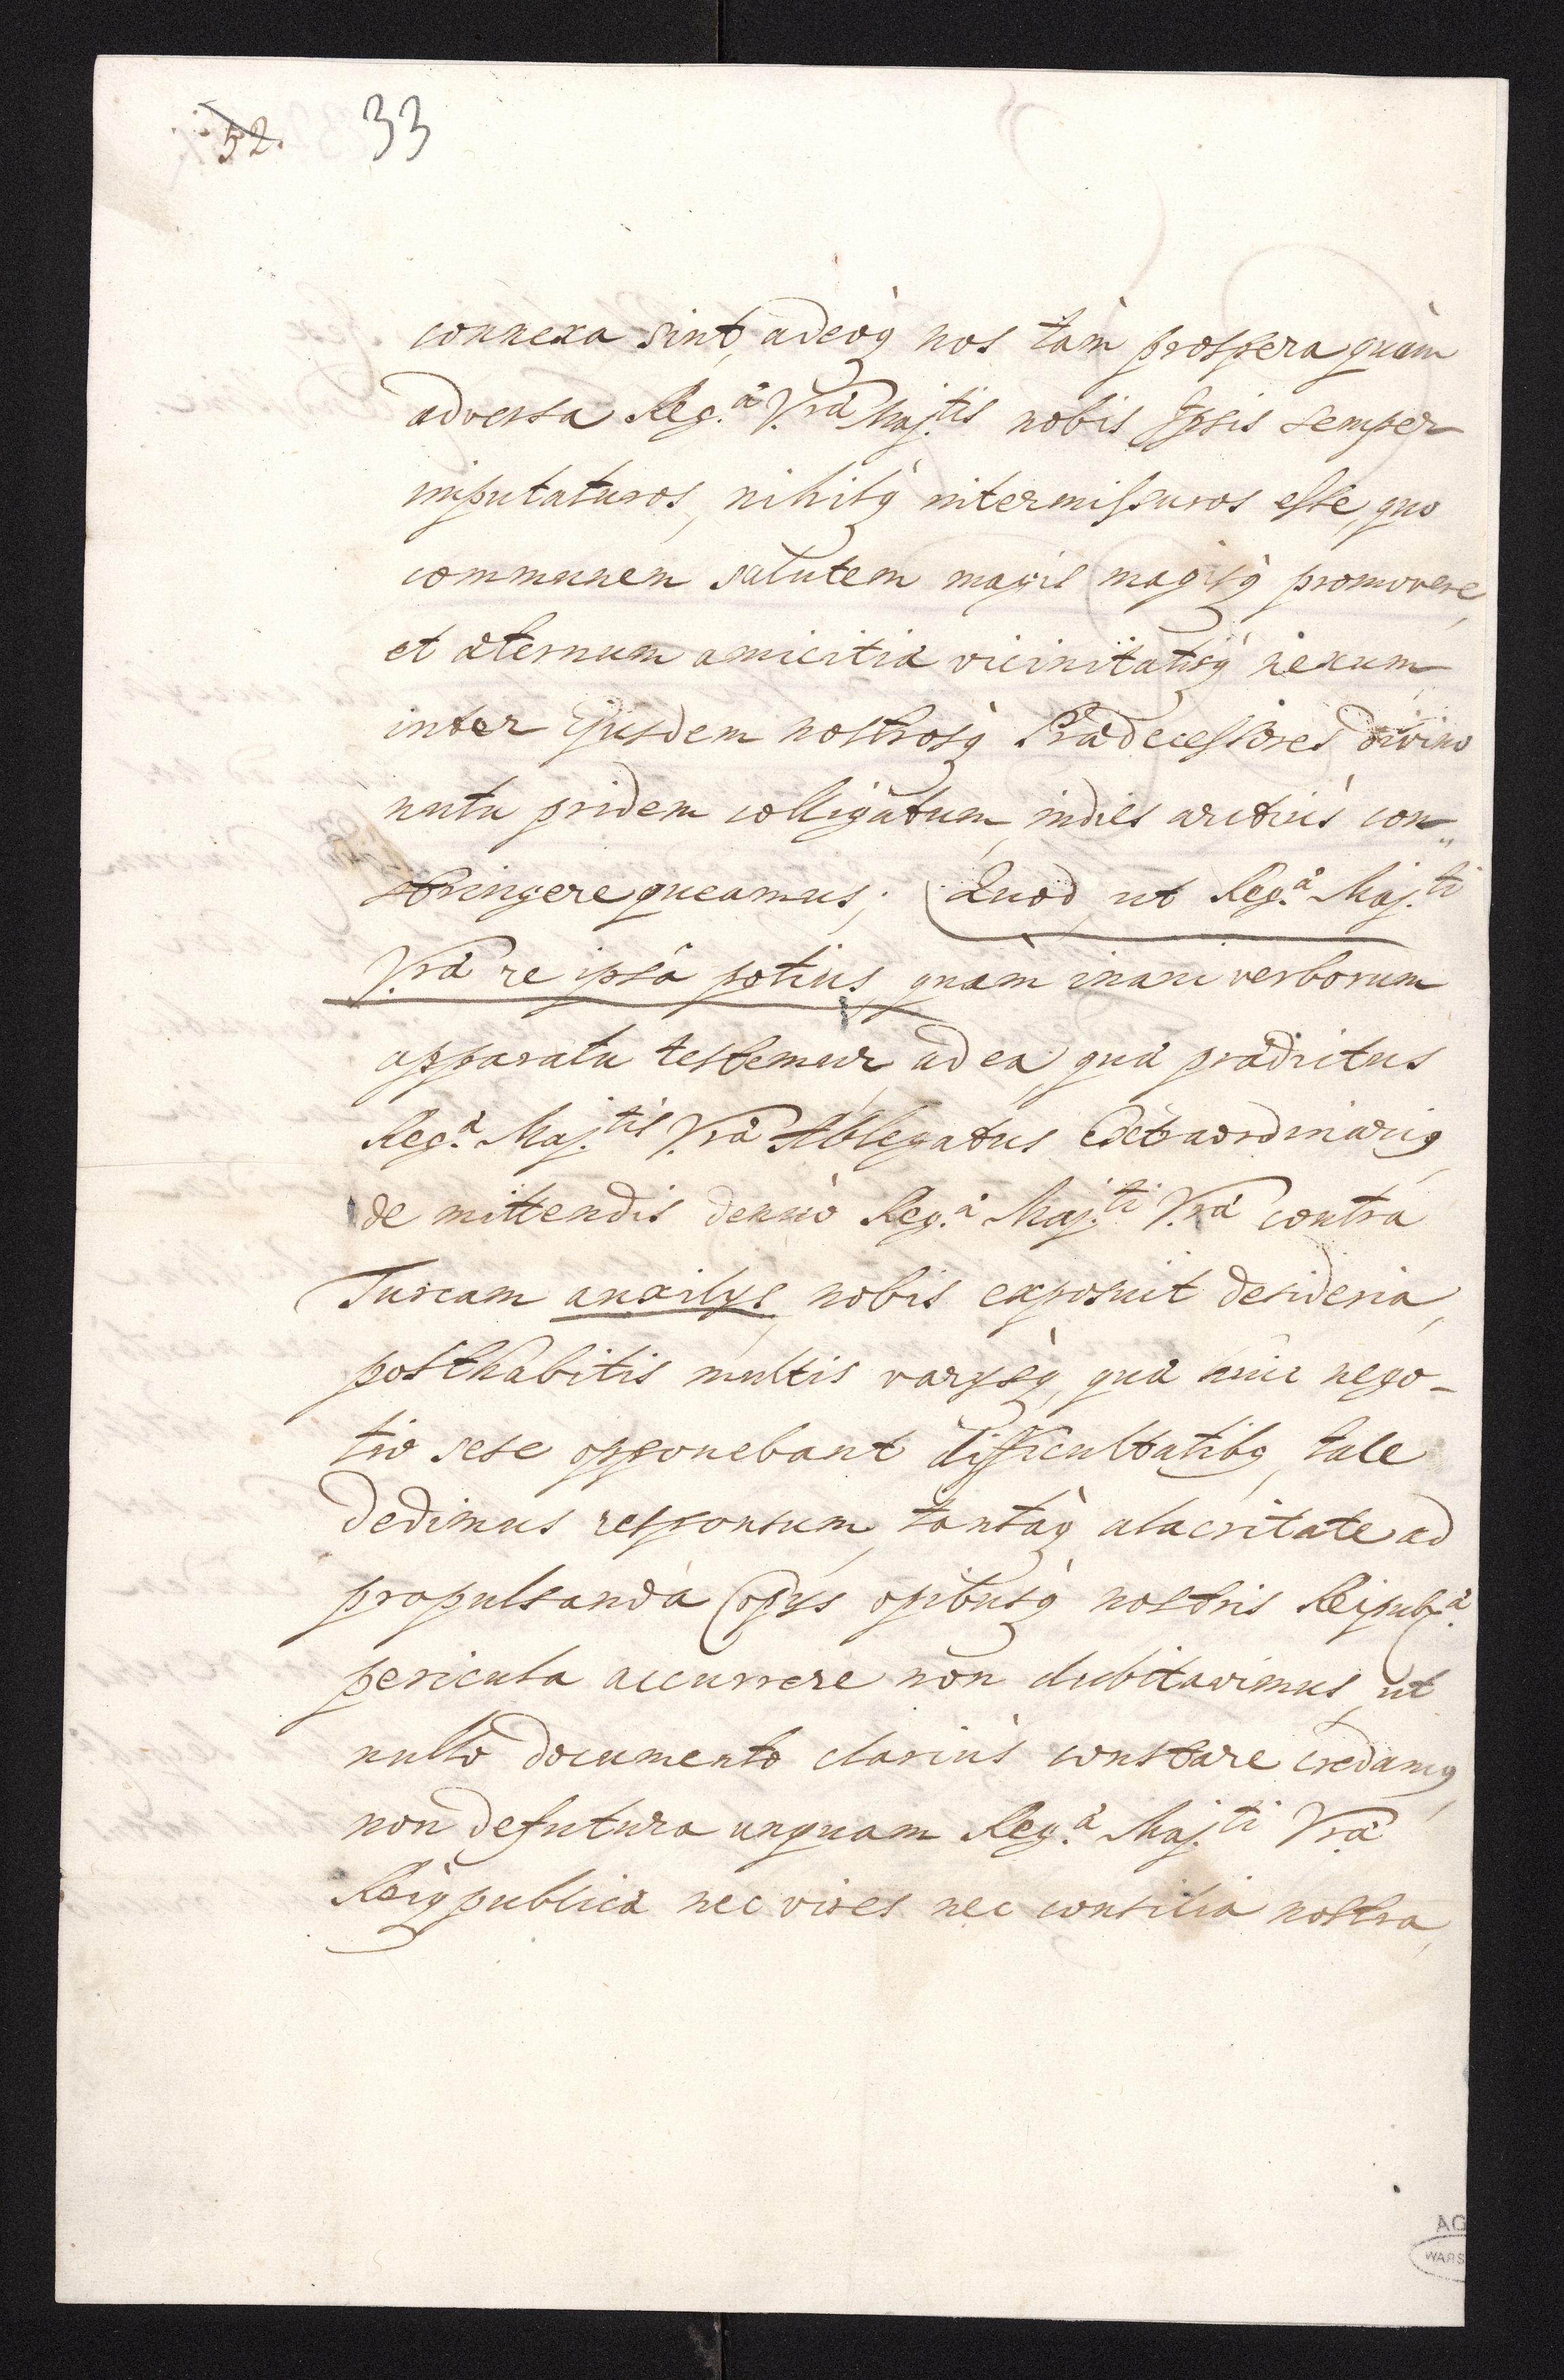 52. 33
connexa sint, adeoq́ nos tàm prospera quàm
adversa Reg.æ V.ræ Maj.tis nobis Ipsis semper
imputaturos, nihilq́ intermissuros esse, quo
communem salutem magis magisq́ promovere,
et æternum amicitiæ vicinitatisq́ nexum
inter Ejusdem nostrosq́ Prædecessores divino
nutu pridem colligatum, indies arctiùs con„
stringere queamus; Quod, ut Reg.æ Maj.ti
V.ræ re ipsâ potius, quàm inani verborum
apparatu testemur, ad ea, quæ præditus
Reg.æ Maj.tis V.ræ Ablegatus Extraordinariq,
de mittendis denuò Reg.æ Maj.ti V.ræ contra
Turcam auxilys, nobis exposuit desideria,
posthabitis multis varysq́, quæ huic nego-
tio sese opponebant difficultatibq, tale
dedimus responsum, tantâq́ alacritate ad
propulsanda Copys opibusq́ nostris Reipubl.æ
pericula accurrere non dubitavimus, ut
nullo documento clariùs constare credamq,
non defutura unquam Reg.æ Maj.ti V.ræ
Reiq́ publicæ nec vires nec consilia nostra,
AG
WARS